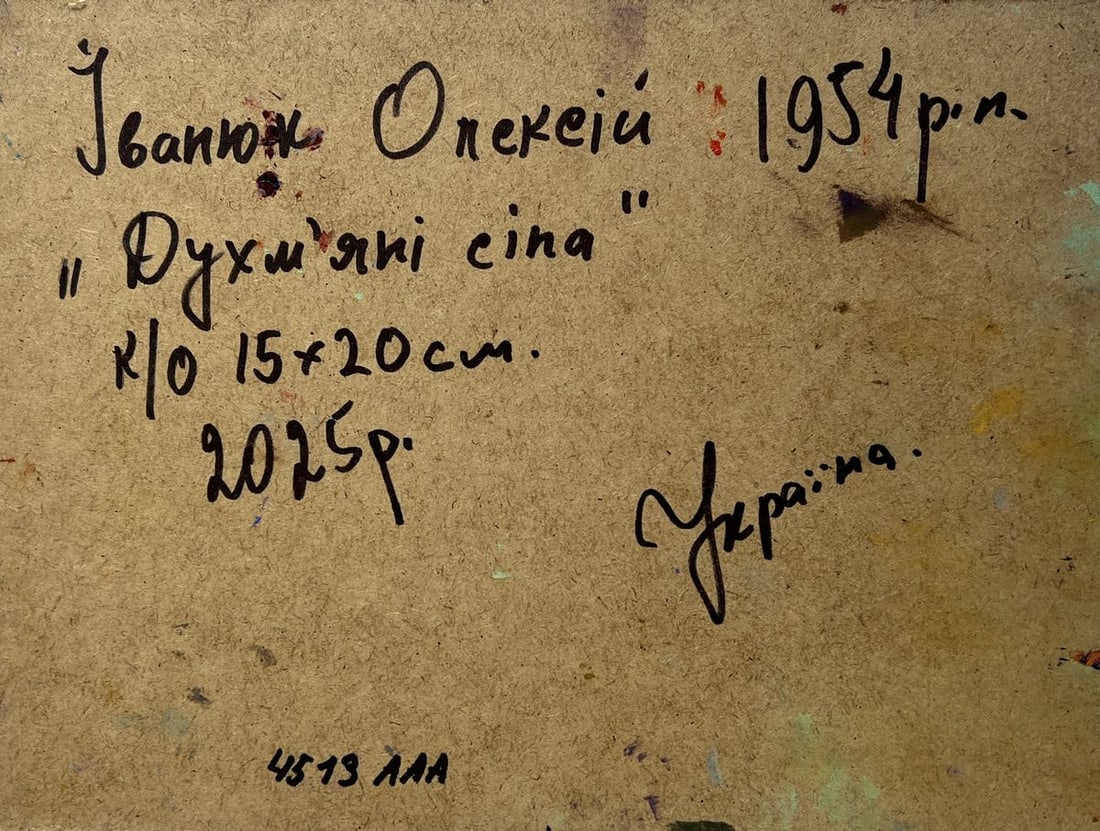 Іванюк Олексій 1954 р.н.
„Духм'яні сіна"
к/о 15х20см.
2025р.
Україна.
4513 ААА